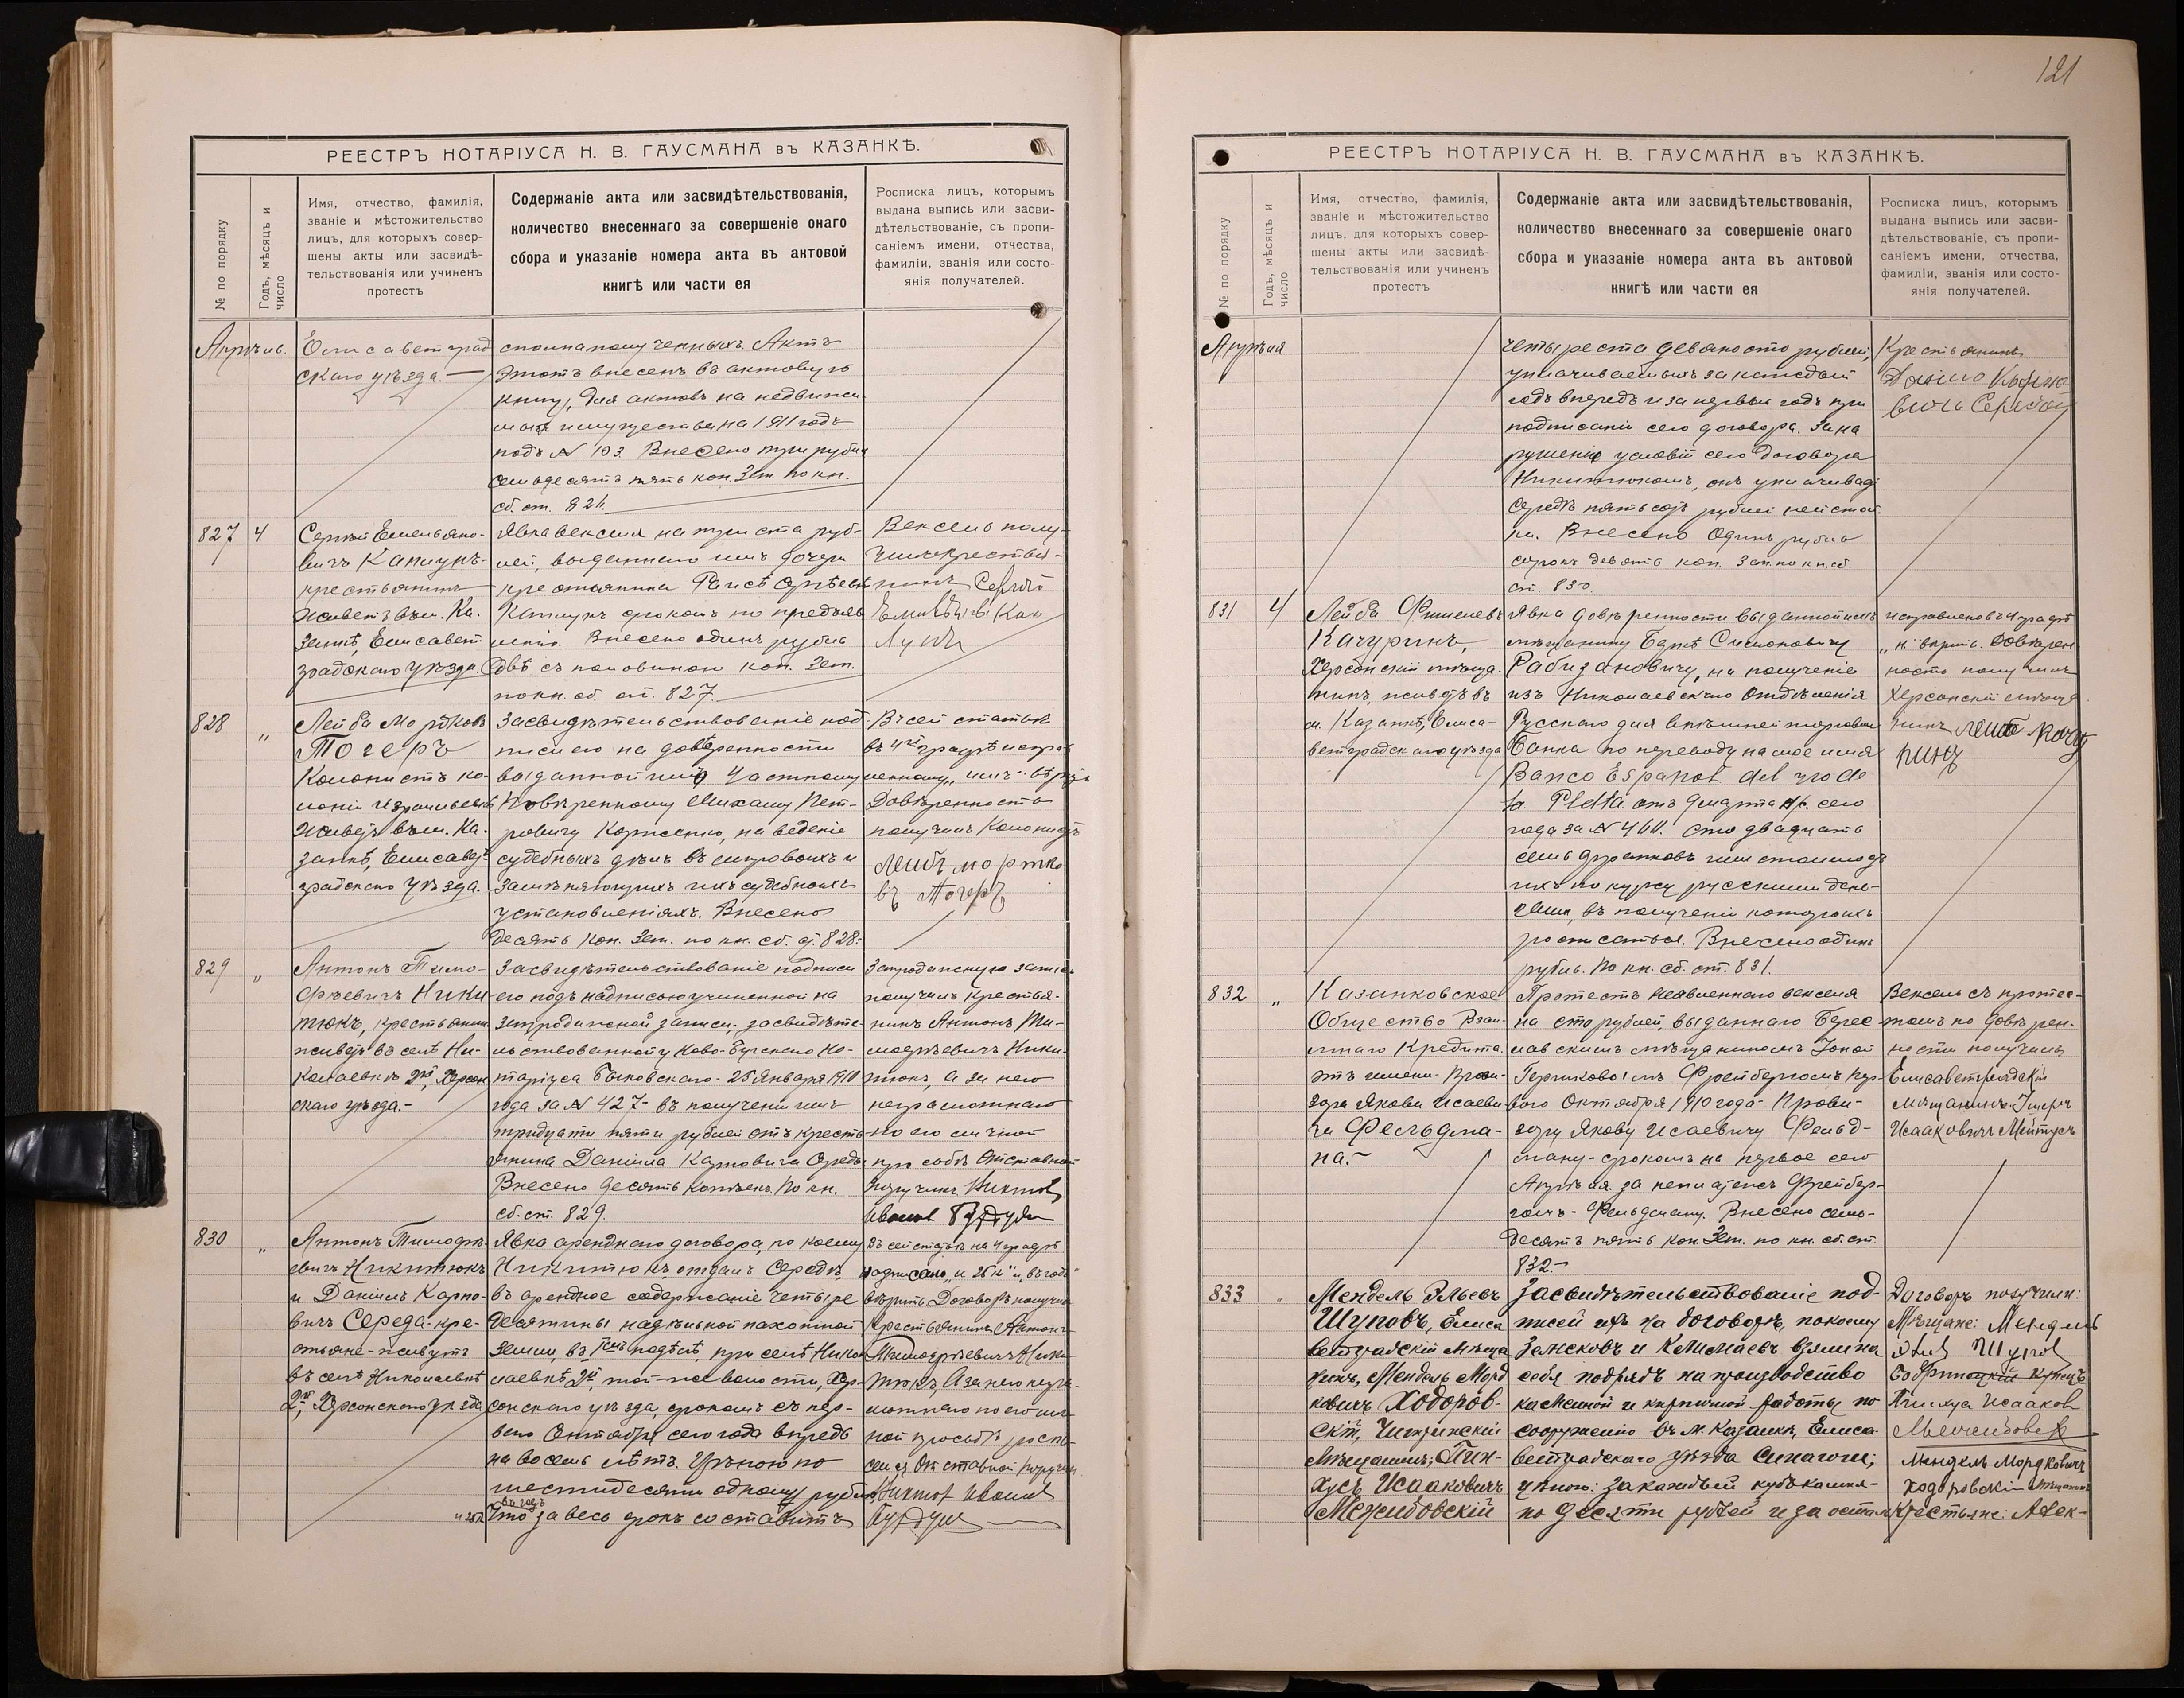 РЕЕСТРЪ НОТАРІУСА Н. В. ГАУСМАНА въ КАЗАНКѢ.
№ по порядку
Годъ, мѣсяцъ и число
Имя, отчество, фамилія,
званіе и мѣстожительство
лицъ, для которыхъ совер-
шены акты или засвидѣ-
тельствованія или учиненъ
протестъ
Содержаніе акта или засвидѣтельствованія,
количество внесеннаго за совершеніе онаго
сбора и указаніе номера акта въ актовой
книгѣ или части ея
Росписка лицъ, которымъ
выдана выпись или засви-
дѣтельствованіе, съ пропи-
саніемъ имени, отчества,
фамиліи, званія или состо-
янія получателей.
Апрѣль.
Елисаветград
скаго уѣзда.
сполна полученныхъ. Актъ
этотъ внесенъ въ актовую
книгу, для актовъ на недвижи-
мыя имущества на 1911 годъ
подъ N 103. Внесено три рубля
семьдесятъ пять коп. Зем. по кн.
сб. ст. 826.
827 4
Сергѣй Емельяно-
вичъ Капмунъ-
крестьянинъ
живетъ въ м. Ка-
занкѣ, Елисавет-
градскаго уѣзда.
Явка векселя на триста руб-
лей, выданнаго имъ дочери
крестьянина Раисѣ Сергѣевнѣ
срокомъ по предъяв-
ленію. Внесено одинъ рубль
двѣ съ половиною коп. Зем.
по кн. сб. ст. 827.
Вексель полу-
чилъ крестья-
нинъ Сергѣй
828 „
Лейба Мортковъ
Тогеръ
Колонистъ ко-
лоніи Израилевка
живетъ въ м. Ка-
занкѣ, Елисавет-
градскаго уѣзда.
Засвидѣтельствованіе под-
писи его на довѣренности
выданной имъ Частному
Повѣренному Михаилу Пет-
ровичу Корженко, на веденіе
судебныхъ дѣлъ въ мировыхъ и
замѣняющихъ ихъ судебныхъ
установленіяхъ. Внесено
десять коп. Зем. по кн. сб. ст. 828.
В сей статьѣ
въ 4й графѣ исправ-
ленному „имъ“ вѣрить
Довѣренность
получилъ Колонистъ
Лейбъ Мортко
въ Тогеръ
829 „
Антонъ Тимо-
феевичъ Ники-
тюкъ, крестьянин
живетъ въ селѣ Ни-
колаевкѣ 2й, Херсон
скаго уѣзда.-
Засвидѣтельствованіе подписи
его подъ надписью учиненной на
запродажной записи, засвидѣте-
льствованной у Ново-Бугскаго Но-
таріуса Быковскаго - 25 Января 1910
года за N 427 - въ полученіи имъ
тридцати пяти рублей отъ кресть-
янина Даніила Карповича Середы.
Внесено десять копѣекъ. По кн.
сб. ст. 829.
Запродажную запись
получилъ крестья-
нинъ Антонъ Ти-
мофеевичъ Ники-
тюкъ, а за него
неграмотнаго
по его личной
просьбѣ Отставной
Поручикъ Викторъ
830 „
Антонъ Тимофѣ-
евичъ Никитюкъ
и Даніилъ Карпо-
вичъ Середа - кре-
стьяне - живутъ
въ селѣ Николаевкѣ
2й, Херсонскаго уѣзда
Явка аренднаго договора, по коему
Никитюкъ отдалъ Середѣ,
въ арендное содержаніе четыре
десятины надѣльной пахотной
земли, въ надѣлѣ, при селѣ Нико-
лаевкѣ 2й, той-же волости, Хер-
сонскаго уѣзда, срокомъ съ пер-
ваго Сентября сего года впредь
на восемь лѣтъ. Цѣною по
шестидесяти одному рублю
въ годъ
Что за весь срокъ составитъ
Въ сей статьѣ на 4 графѣ
вѣрить. Договоръ получил
Крестьянинъ Антонъ
Тимофѣевичъ Ники-
тюкъ, а за него негра-
мотнаго по его лич-
ной просьбѣ роспи-
сался Отставной Поручик
121
РЕЕСТРЪ НОТАРІУСА Н. В. ГАУСМАНА въ КАЗАНКѢ.
№ по порядку
Годъ, мѣсяцъ и число
Имя, отчество, фамилія,
званіе и мѣстожительство
лицъ, для которыхъ совер-
шены акты или засвидѣ-
тельствованія или учиненъ
протестъ
Содержаніе акта или засвидѣтельствованія,
количество внесеннаго за совершеніе онаго
сбора и указаніе номера акта въ актовой
книгѣ или части ея
Росписка лицъ, которымъ
выдана выпись или засви-
дѣтельствованіе, съ пропи-
саніемъ имени, отчества,
фамиліи, званія или состо-
янія получателей.
Апрѣля
четыреста девяносто рублей,
уплачиваемыхъ за каждый
годъ впередъ и за первый годъ при
подписаніи сего договора. За на
рушеніе условій сего договора
Никитюкомъ, онъ уплачивает
Середѣ пятьсотъ рублей неустой-
ки. Внесено Одинъ рубль
сорокъ девять коп. Зем. по кн. сб.
ст. 830.
Крестьянинъ
831 4
Лейба Фишелевъ
Качуринъ,
Херсонскій мѣща-
нинъ, живетъ въ
м. Казанкѣ, Елиса-
ветградскаго уѣзда
Явка довѣренности выданной имъ
мѣщанину Беркѣ Симоновичу
Рабизановичу, на полученіе
изъ Николаевскаго Отдѣленія
Русскаго для внѣшней торговли
Банка по переводу на мое имя
Banco Español del Rio de
la Plata отъ 9 марта н/с. сего
года за N 460. сто двадцать
семь франковъ или стоимость
ихъ по курсу русскими день-
гами, въ полученіи которыхъ
росписаться. Внесено одинъ
рубль. По кн. сб. ст. 831.
исправлено въ 4 графѣ
„н“ вѣрить. Довѣрен
ность получилъ
Херсонскій мѣща-
нинъ Лейбъ Качу
ринъ
832 „
Казанковское
Общество Взаи-
мнаго Кредита.
Протестъ неявленнаго векселя
на сто рублей, выданнаго Берес-
лавскимъ мѣщаниномъ Іоной
Гершковымъ Фрейбергомъ пер-
ваго Октября 1910 года - Прови-
зору Якову Исаевичу Фельд-
ману - срокомъ на первое сего
Апрѣля. за неплатежъ Фрейбер-
гомъ - Фельдману. Внесено семь-
десятъ пять коп. Зем. по кн. сб. ст.
832.-
зора Якова Исаеви-
ча Фельдма-
на.-
Вексель съ протес-
томъ по довѣрен-
ности получилъ
Елисаветградскій
мѣщанинъ
Исааковичъ
833 „
Мендель Эльевъ
Шуповъ, Елиса
ветградскій мѣща
нинъ, Мендель Морд
ковичъ Ходоров-
скій, мѣщанинъ; Пин-
хусъ Исааковичъ
Межибовскій
Засвидѣтельствованіе под-
писей ихъ на договорѣ, по коему
взяли на
себя подрядъ на производство
каменной и кирпичной работы по
сооруженію въ м. Казанкѣ, Елиса-
ветградскаго уѣзда Синагоги;
цѣною: за каждый кубъ камня-
по десяти рублей и за остал
Договоръ получили:
Мѣщане: Мендель
Мендель Мордковичъ
Ходоровскій
Крестьяне: Алек-